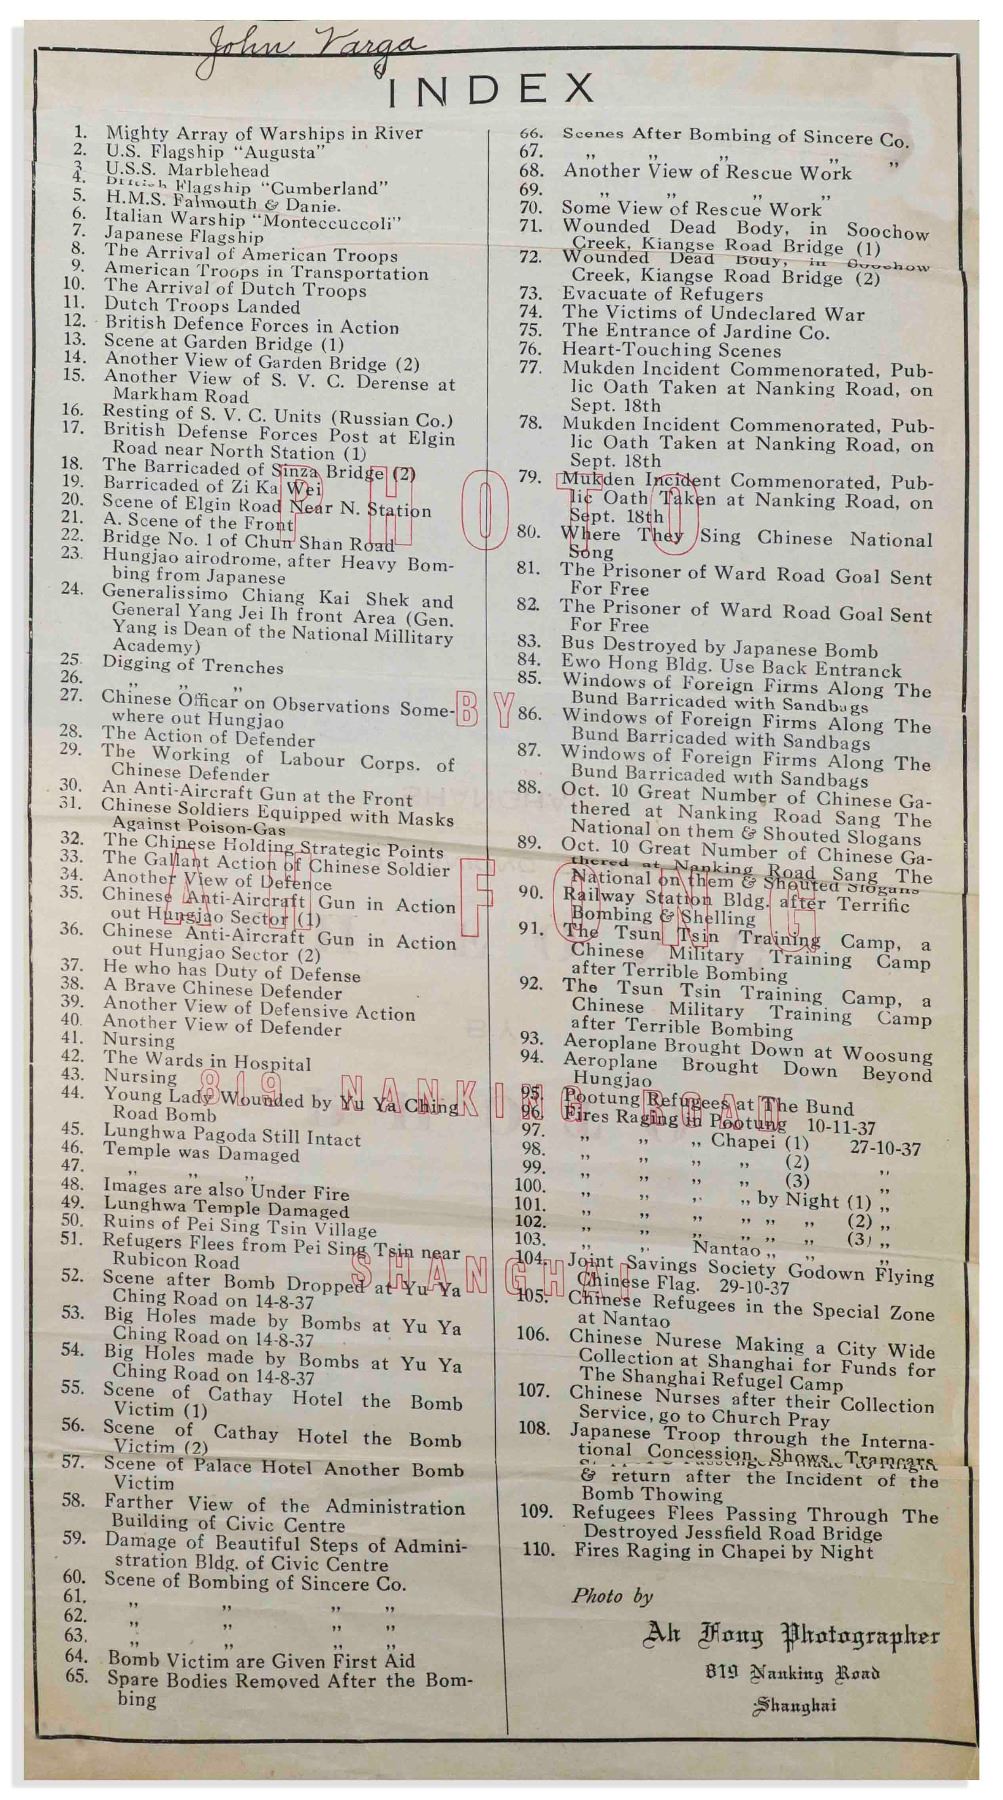 John Varga
INDEX
1. Mighty Array of Warships in River
2. U.S. Flagship “Augusta”
3. U.S.S. Marblehead
4. British Flagship “Cumberland”
5. H.M.S. Falmouth & Danie.
6. Italian Warship “Monteccuccoli”
7. Japanese Flagship
8. The Arrival of American Troops
9. American Troops in Transportation
10. The Arrival of Dutch Troops
11. Dutch Troops Landed
12. British Defence Forces in Action
13. Scene at Garden Bridge (1)
14. Another View of Garden Bridge (2)
15. Another View of S. V. C. Derense at
Markham Road
16. Resting of S. V. C. Units (Russian Co.)
17. British Defense Forces Post at Elgin
Road near North Station (1)
18. The Barricaded of Sinza Bridge (2)
19. Barricaded of Zi Ka Wei
20. Scene of Elgin Road Near N. Station
21. A. Scene of the Front
22. Bridge No. 1 of Chun Shan Road
23. Hungjao airodrome, after Heavy Bom-
bing from Japanese
24. Generalissimo Chiang Kai Shek and
General Yang Jei Ih front Area (Gen.
Yang is Dean of the National Millitary
Academy)
25. Digging of Trenches
26. ,, ,, ,,
27. Chinese Officar on Observations Some-
where out Hungjao
28. The Action of Defender
29. The Working of Labour Corps. of
Chinese Defender
30. An Anti-Aircraft Gun at the Front
31. Chinese Soldiers Equipped with Masks
Against Poison-Gas
32. The Chinese Holding Strategic Points
33. The Gallant Action of Chinese Soldier
34. Another View of Defence
35. Chinese Anti-Aircraft Gun in Action
out Hungjao Sector (1)
36. Chinese Anti-Aircraft Gun in Action
out Hungjao Sector (2)
37. He who has Duty of Defense
38. A Brave Chinese Defender
39. Another View of Defensive Action
40. Another View of Defender
41. Nursing
42. The Wards in Hospital
43. Nursing
44. Young Lady Wounded by Yu Ya Ching
Road Bomb
45. Lunghwa Pagoda Still Intact
46. Temple was Damaged
47. ,, ,, ,,
48. Images are also Under Fire
49. Lunghwa Temple Damaged
50. Ruins of Pei Sing Tsin Village
51. Refugers Flees from Pei Sing Tsin near
Rubicon Road
52. Scene after Bomb Dropped at Yu Ya
Ching Road on 14-8-37
53. Big Holes made by Bombs at Yu Ya
Ching Road on 14-8-37
54. Big Holes made by Bombs at Yu Ya
Ching Road on 14-8-37
55. Scene of Cathay Hotel the Bomb
Victim (1)
56. Scene of Cathay Hotel the Bomb
Victim (2)
57. Scene of Palace Hotel Another Bomb
Victim
58. Farther View of the Administration
Building of Civic Centre
59. Damage of Beautiful Steps of Admini-
stration Bldg. of Civic Centre
60. Scene of Bombing of Sincere Co.
61. ,, ,, ,, ,,
62. ,, ,, ,, ,,
63. ,, ,, ,, ,,
64. Bomb Victim are Given First Aid
65. Spare Bodies Removed After the Bom-
bing
66. Scenes After Bombing of Sincere Co.
67. ,, ,, ,, ,, ,,
68. Another View of Rescue Work
69. ,, ,, ,, ,,
70. Some View of Rescue Work
71. Wounded Dead Body, in Soochow
Creek, Kiangse Road Bridge (1)
72. Wounded Dead Body, in Soochow
Creek, Kiangse Road Bridge (2)
73. Evacuate of Refugers
74. The Victims of Undeclared War
75. The Entrance of Jardine Co.
76. Heart-Touching Scenes
77. Mukden Incident Commenorated, Pub-
lic Oath Taken at Nanking Road, on
Sept. 18th
78. Mukden Incident Commenorated, Pub-
lic Oath Taken at Nanking Road, on
Sept. 18th
79. Mukden Incident Commenorated, Pub-
lic Oath Taken at Nanking Road, on
Sept. 18th
80. Where They Sing Chinese National
Song
81. The Prisoner of Ward Road Goal Sent
For Free
82. The Prisoner of Ward Road Goal Sent
For Free
83. Bus Destroyed by Japanese Bomb
84. Ewo Hong Bldg. Use Back Entranck
85. Windows of Foreign Firms Along The
Bund Barricaded with Sandbags
86. Windows of Foreign Firms Along The
Bund Barricaded with Sandbags
87. Windows of Foreign Firms Along The
Bund Barricaded with Sandbags
88. Oct. 10 Great Number of Chinese Ga-
thered at Nanking Road Sang The
National on them & Shouted Slogans
89. Oct. 10 Great Number of Chinese Ga-
thered at Nanking Road Sang The
National on them & Shouted Slogans
90. Railway Station Bldg. after Terrific
Bombing & Shelling
91. The Tsun Tsin Training Camp, a
Chinese Military Training Camp
after Terrible Bombing
92. The Tsun Tsin Training Camp, a
Chinese Military Training Camp
after Terrible Bombing
93. Aeroplane Brought Down at Woosung
94. Aeroplane Brought Down Beyond
Hungjao
95. Pootung Refugees at The Bund
96. Fires Raging in Pootung 10-11-37
97. ,, ,, ,, Chapei (1) 27-10-37
98. ,, ,, ,, ,, (2) ,,
99. ,, ,, ,, ,, (3) ,,
100. ,, ,, ,, ,, by Night (1) ,,
101. ,, ,, ,, ,, ,, ,, (2) ,,
102. ,, ,, ,, ,, ,, ,, (3) ,,
103. ,, ,, Nantao ,, ,, ,,
104. Joint Savings Society Godown Flying
Chinese Flag. 29-10-37
105. Chinese Refugees in the Special Zone
at Nantao
106. Chinese Nurese Making a City Wide
Collection at Shanghai for Funds for
The Shanghai Refugel Camp
107. Chinese Nurses after their Collection
Service, go to Church Pray
108. Japanese Troop through the Interna-
tional Concession, Shows Tramcars
& return after the Incident of the
Bomb Thowing
109. Refugees Flees Passing Through The
Destroyed Jessfield Road Bridge
110. Fires Raging in Chapei by Night
Photo by
Ah Fong Photographer
819 Nanking Road
Shanghai
PHOTO
BY
AH FONG
819 NANKING ROAD
SHANGHAI